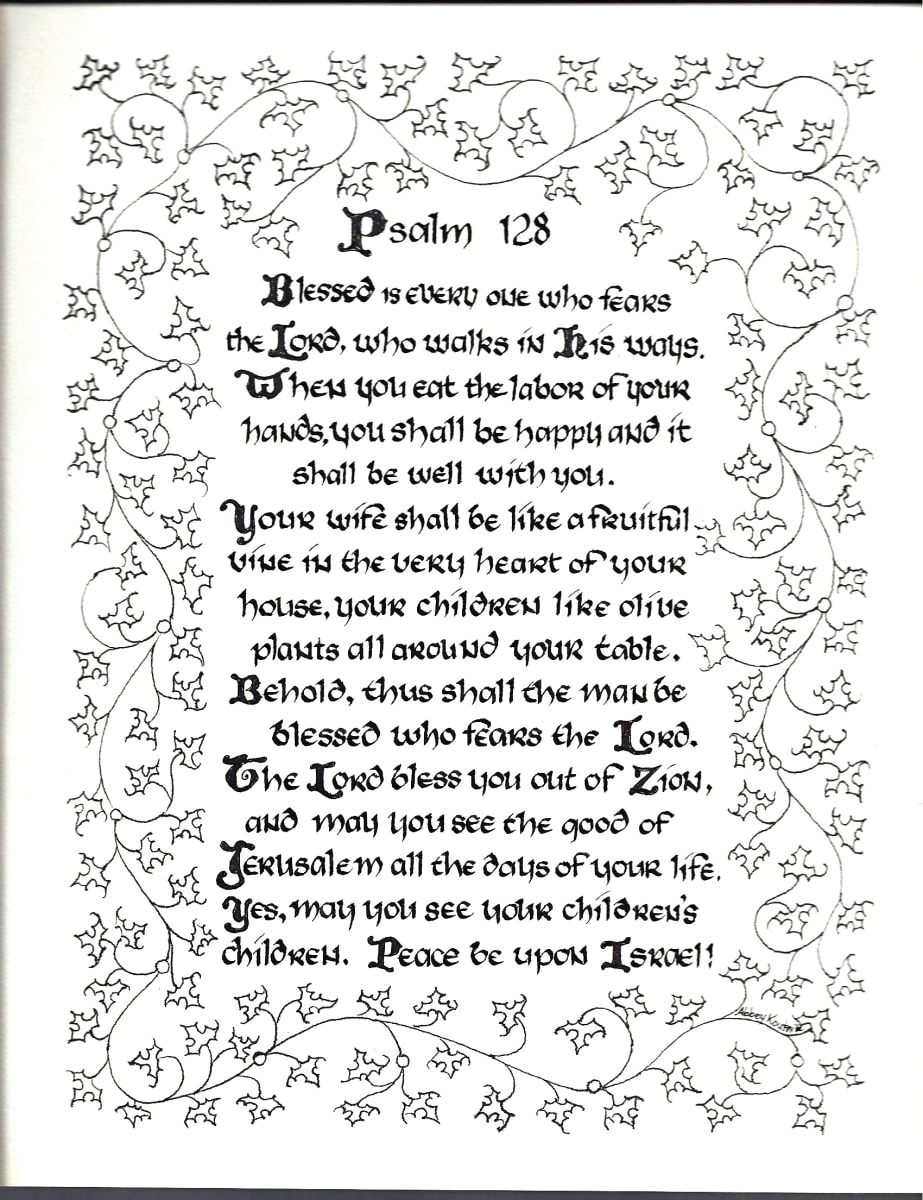 Psalm 128
Blessed is every one who fears
the Lord, who walks in His ways.
When you eat the labor of your
hands, you shall be happy and it
shall be well with you.
Your wife shall be like a fruitful
vine in the very heart of your
house, your children like olive
plants all around your table.
Behold, thus shall the man be
blessed who fears the Lord.
The Lord bless you out of Zion,
and may you see the good of
Jerusalem all the days of your life.
Yes, may you see your children's
children. Peace be upon Israel!
Abbey